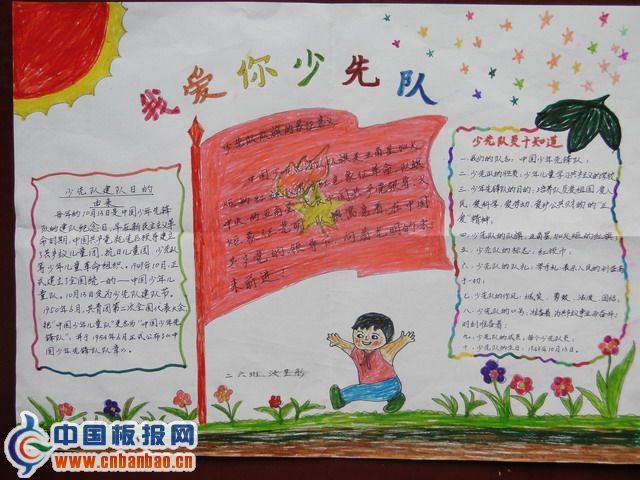 我爱你少先队
少先队建队日的
由来
每年的10月13日是中国少年先锋
队的建队纪念日。早在新民主主义革
命时期,中国共产党就先后领导建立
了共产儿童团,抗日儿童团,少先队
等少年儿童革命组织。1949年10月13日正
式建立了全国统一的——中国少年儿
童队。10月13日定为少先队建队节。
1950年6月,共青团第二次全国代表会
把"中国少年儿童队"更名为"中国少年先
锋队",并于1954年6月正式公布了《中
国少年先锋队队章》。
少先队队旗的象征意义
中国少年先锋队队旗是五角星加火
炬的红旗
中央的五角星代表中国共产党领导,火
炬象征光明
共产党的领导下,向着光明的未
来前进!
少先队员十知道
一.我们的队名:中国少年先锋队;
二.少先队的性质:少年儿童学习共产主义的学校
三.少年先锋队的目的:培养队员爱祖国,爱人
民,爱科学,爱劳动,爱护公共财物的"五
爱"精神;
四.少先队的队旗:五角星加火炬的红旗;
五.少先队的标志:红领巾;
六.少先队的队礼:
于一切;
七.少先队的作风:诚实、勇敢、活泼、团结;
八.少先队的口号:
时刻准备着;
九.少先队的成员:每个少先队员;
十.少先队的生日:1949年10月13日。
二六班
中国板报网
www.cnbanbao.cn